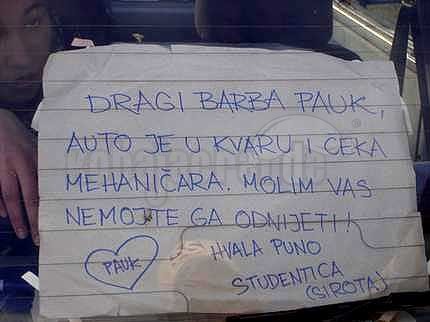 DRAGI BARBA PAUK,
AUTO JE U KVARU I ČEKA
MEHANIČARA. MOLIM VAS
NEMOJTE GA ODNIJETI!
PAUK
HVALA PUNO
STUDENTICA
(SIROTA)